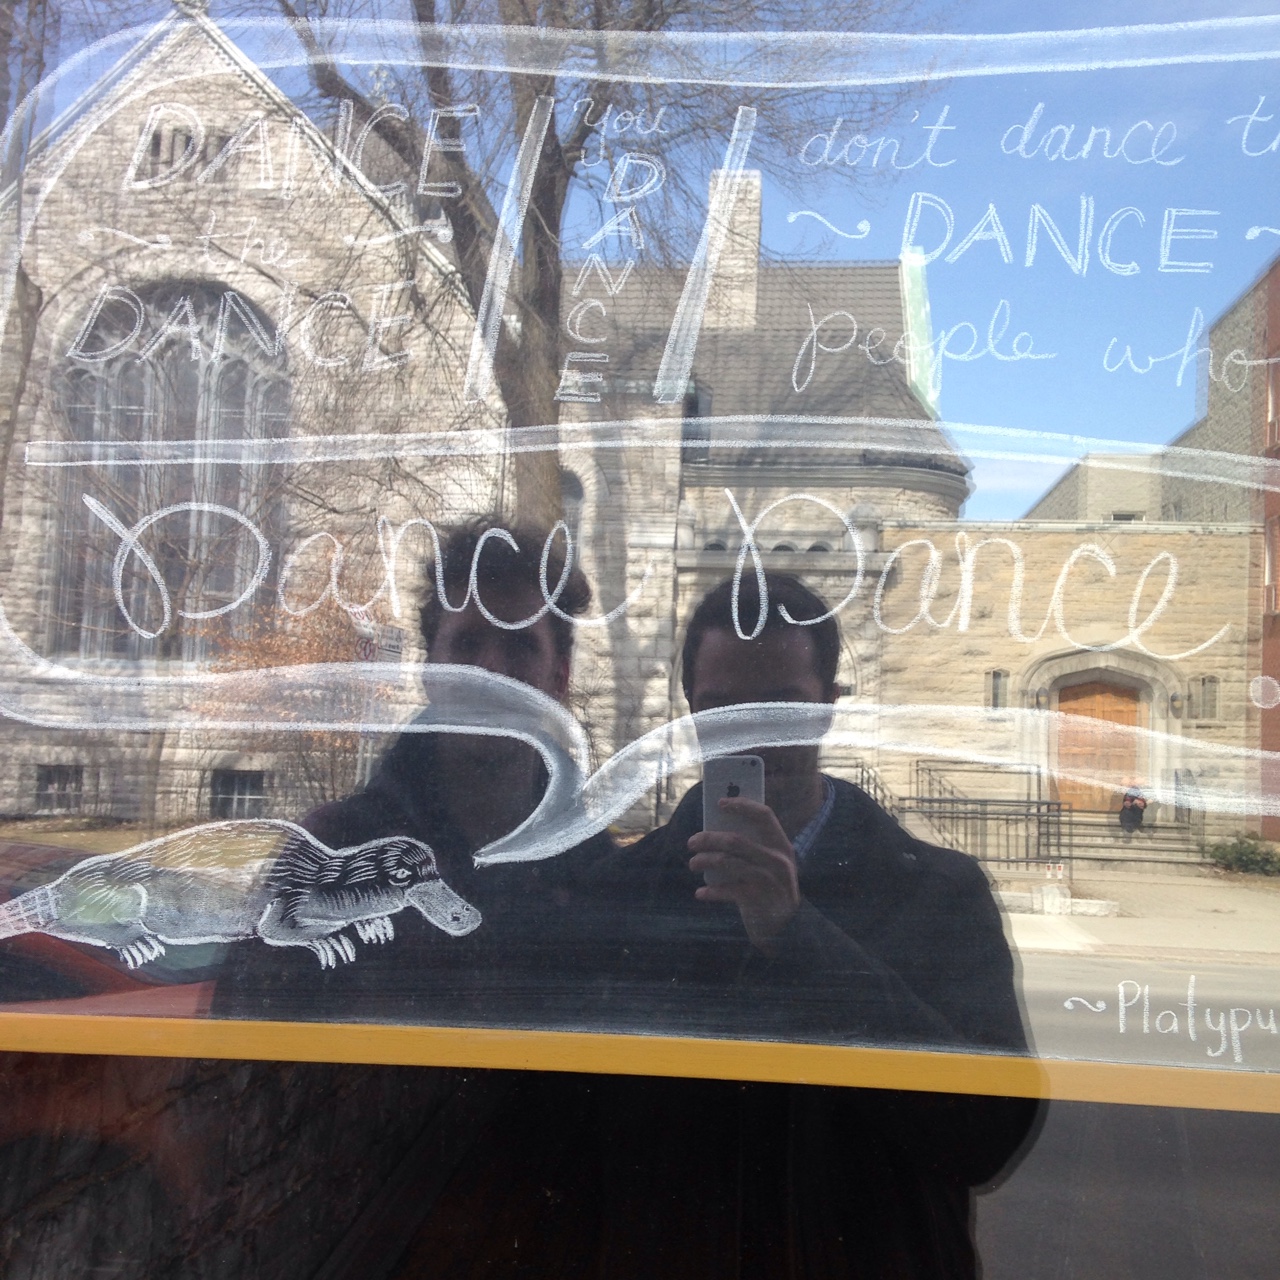 DANCE
~ the ~
DANCE
you
DANCE
don't dance
~ DANCE ~
people who
Dance Dance